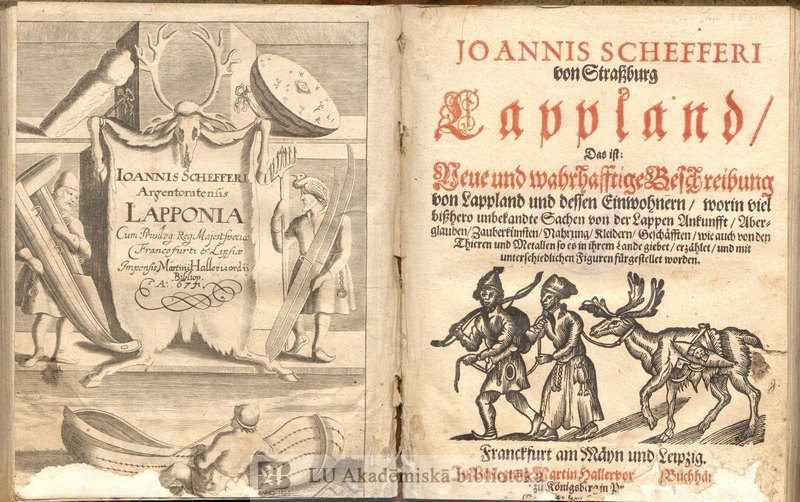 IOANNIS SCHEFFERI
Argentoratensis
LAPPONIA
Cum Privileg. Reg. Majest. speciali
Francofurti & Lipsiæ
Impensis Martini Hallervordii
Bibliop.
JOANNIS SCHEFFERI
von Straßburg
Lappland/
Das ist:
Neue und wahrhafftige Beschreibung
von Lappland und dessen Einwohnern/ worin viel
bißhero unbekandte Sachen von der Lappen Ankunfft/ Aber-
glauben/ Zauberkünsten/ Nahrung/ Kleidern/ Geschäfften/ wie auch von den
Thieren und Metallen so es in ihrem Lande giebet/ erzählet/ und mit
unterschiedlichen Figuren fürgestellet worden.
Franckfurt am Mäyn und Leipzig.
Martin Hallervor
zu Königsberg in Pr
LU Akadēmiskā bibliotēka